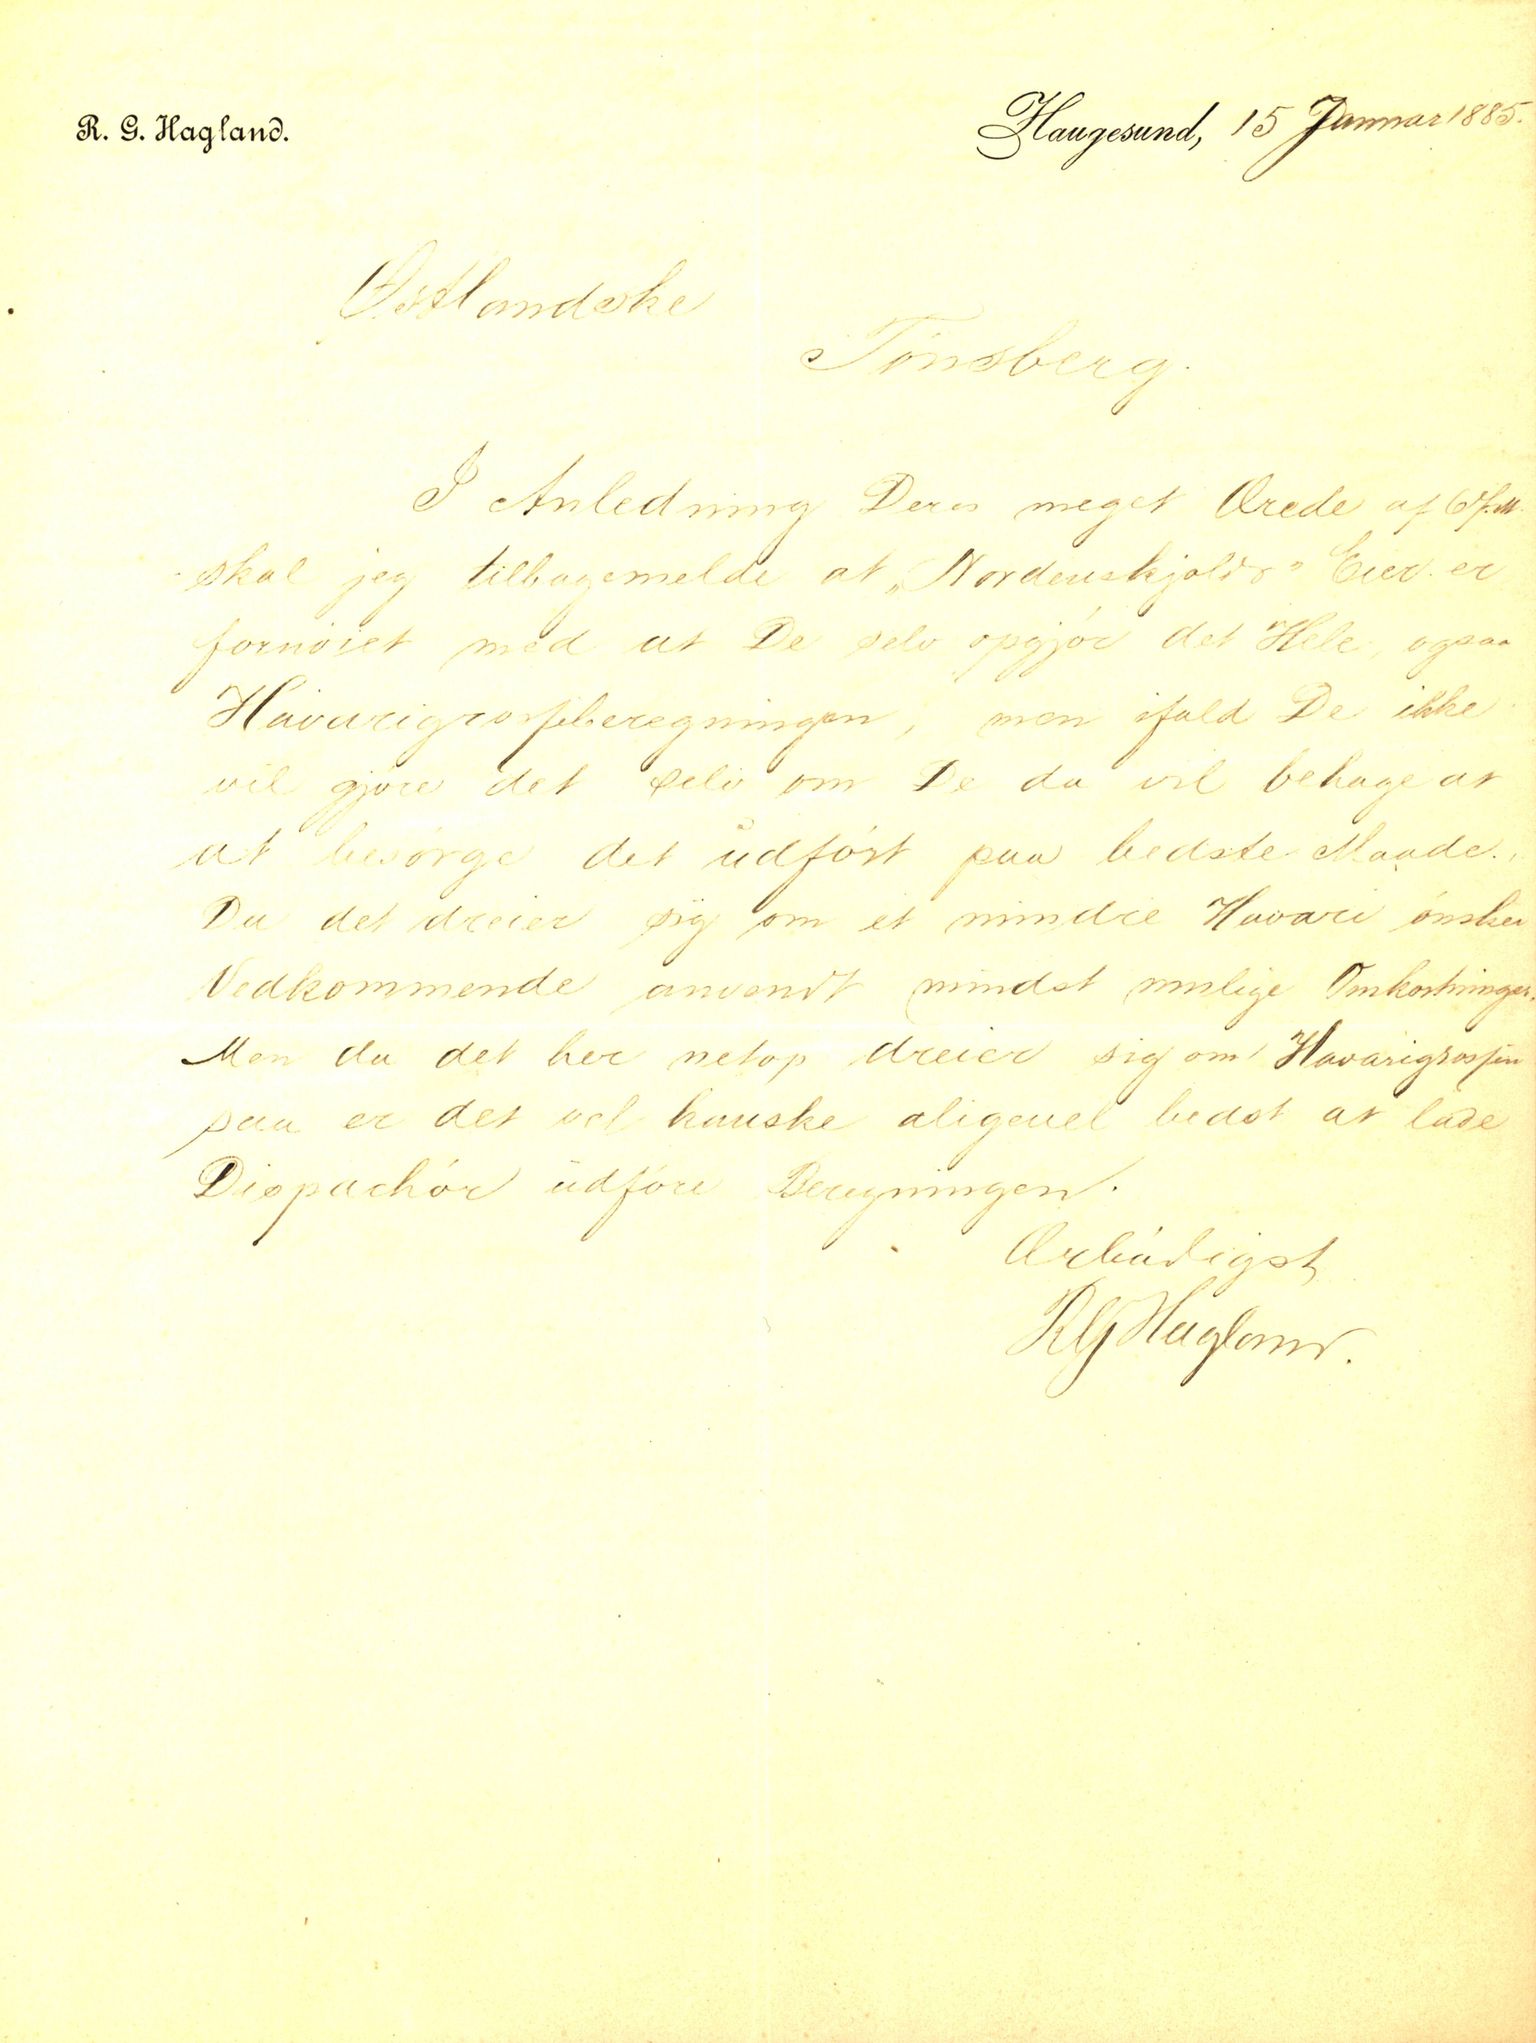 R. G. Hagland.
Haugesund, 15 Januar 1885.
Østlandske
Tönsberg.
I Anledning Deres meget Ærede af
skal jeg tilbagemelde at „Nordenskjolds" Eier er
fornöiet med at De selv opgjör det Hele, ogsaa
Havarigrosseberegningen, men ifald De ikke
vil gjöre det selv om De da vil behage at
at besörge det udfört paa bedste Maade.
Da det dreier sig om et mindre Havari önsker
Vedkommende anvendt mindst mulige Omkostninger.
Men da det her netop dreier sig om Havarigrossen
saa er det vel kanske aligevel bedst at lade
Dispachör udföre Beregningen.
Ærbödigst
RG Hagland.